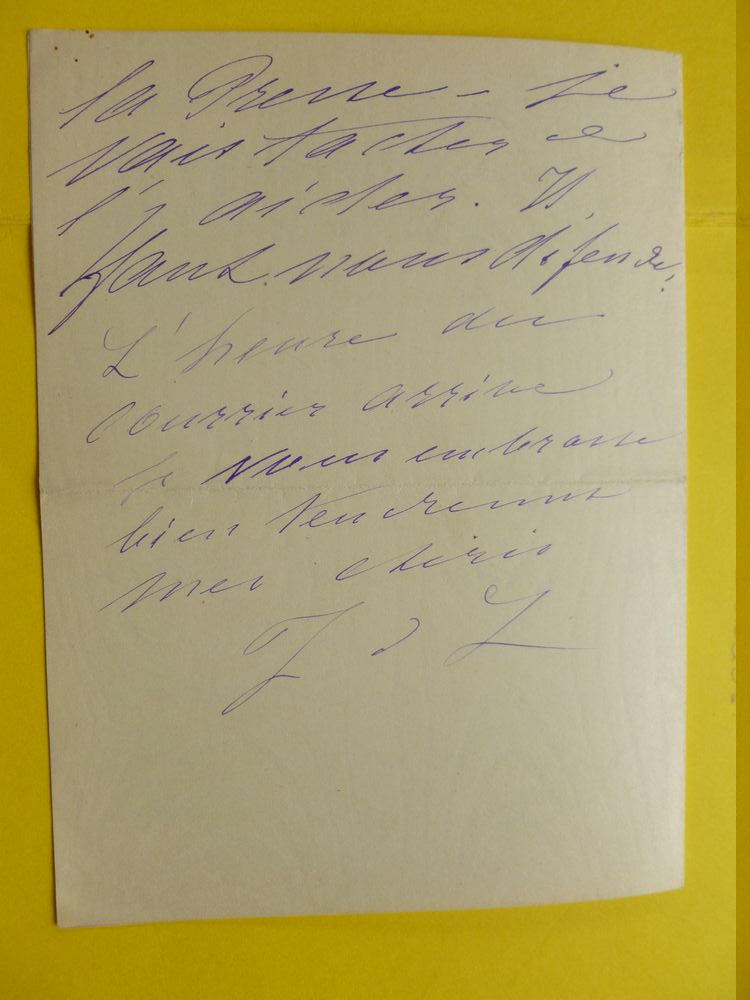 la Presse – je
vais tacher de
l'y aider. Il
faut nous défendre,
L'heure du
courrier arrive
je vous embrasse
bien tendremt
mes chéris
J d L